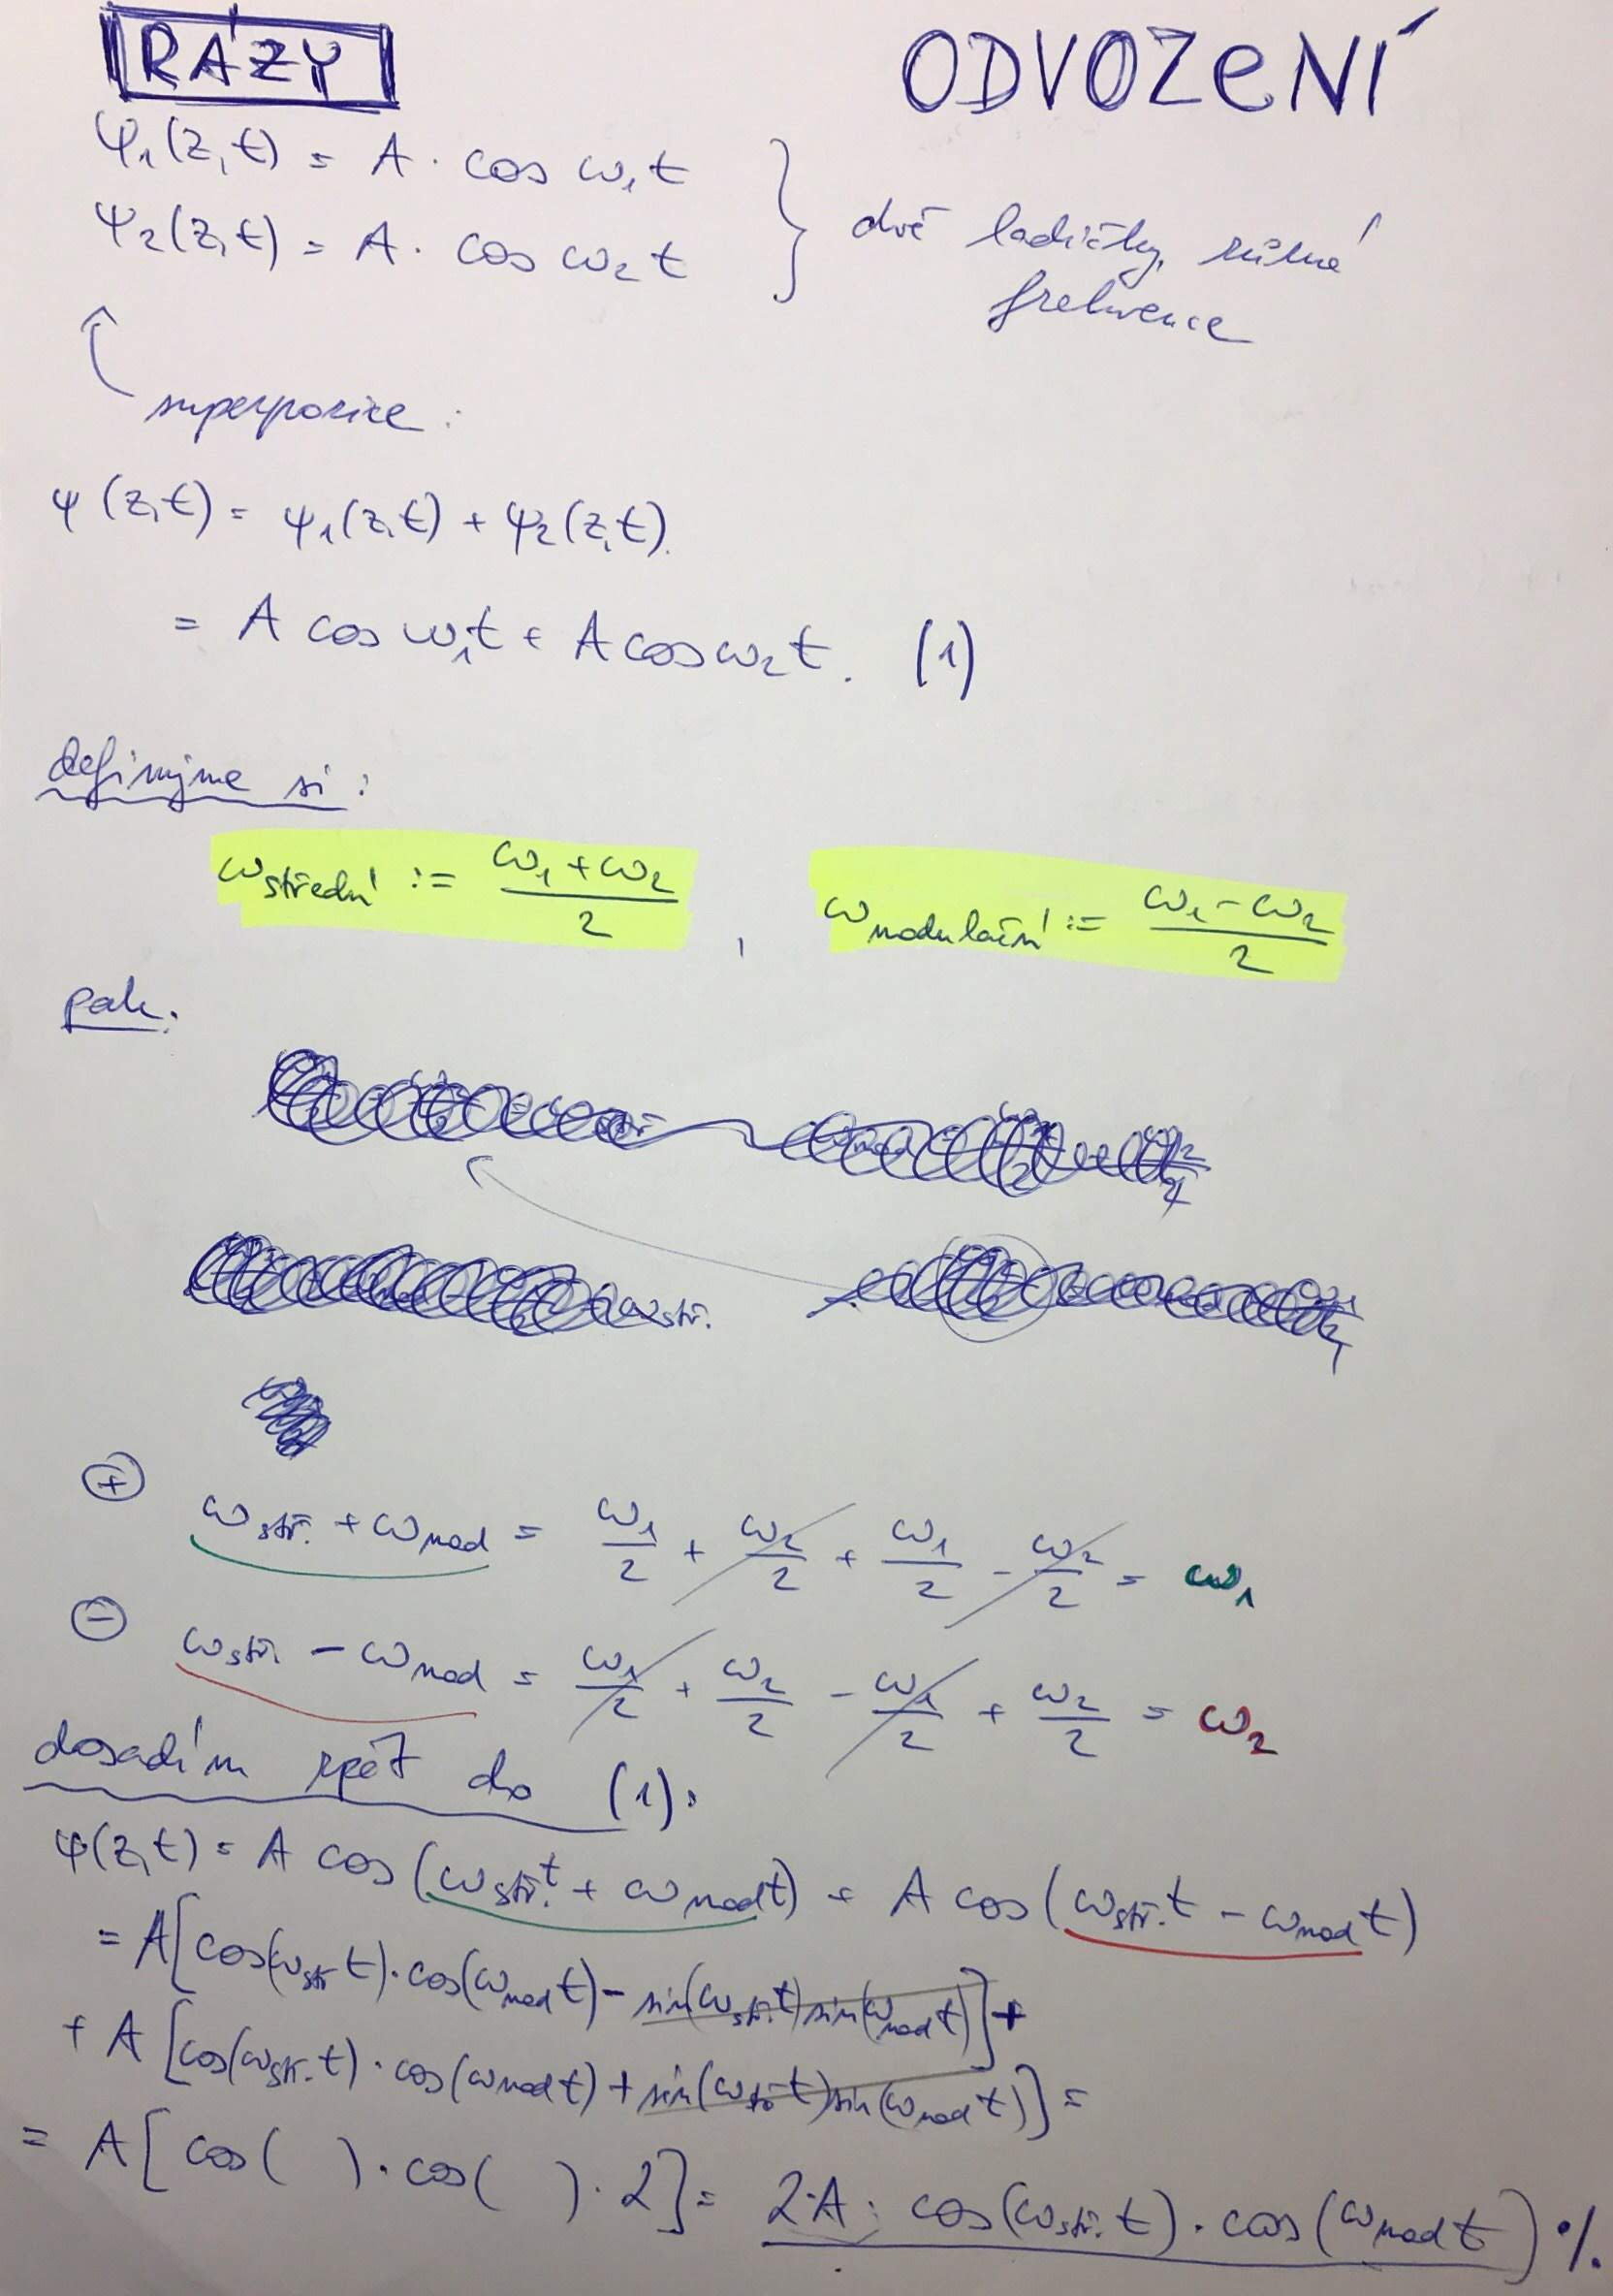 RÁZY
ODVOZENÍ
ψ₁(z,t) = A · cos ω₁t
ψ₂(z,t) = A · cos ω₂t
dvě ladičky, různé
frekvence
superpozice :
ψ(z,t) = ψ₁(z,t) + ψ₂(z,t).
= A cos ω₁t + A cos ω₂t. (1)
definujme si :
ω střední := (ω₁ + ω₂)/2 , ω modulační := (ω₁ - ω₂)/2
pak:
⊕ ω stř. + ω mod = ω₁/2 + ω₂/2 + ω₁/2 - ω₂/2 = ω₁
⊖ ω stř. - ω mod = ω₁/2 + ω₂/2 - ω₁/2 + ω₂/2 = ω₂
dosadím zpět do (1):
ψ(z,t) = A cos (ω stř. t + ω mod t) + A cos (ω stř. t - ω mod t)
= A[cos(ω stř t) · cos(ω mod t) - sin(ω stř. t) sin(ω mod t)] +
+ A [cos(ω stř. t) · cos(ω mod t) + sin(ω stř t) sin(ω mod t)] =
= A[ cos( ) · cos( ) · 2] = 2·A · cos(ω stř. t) · cos(ω mod t) %.